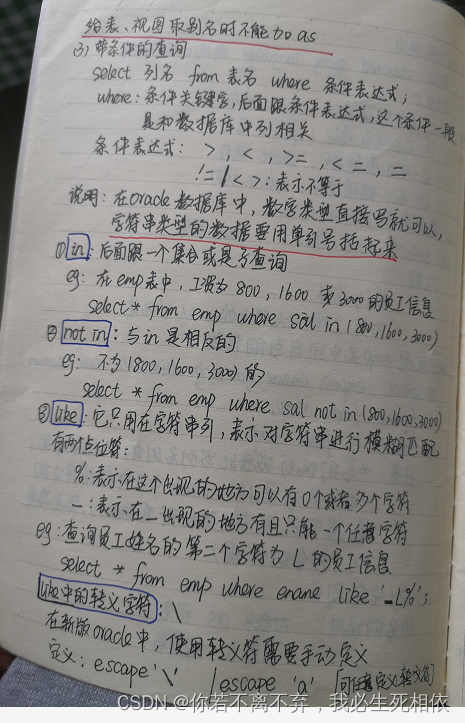 给表、视图取别名时不能加as
(3) 带条件的查询
select 列名 from 表名 where 条件表达式;
where:条件关键字,后面跟条件表达式,这个条件一般
是和数据库中列相关
条件表达式: >, <, >=, <=, =
!= / <>:表示不等于
说明:在oracle数据库中,数字类型直接写就可以,
字符串类型的数据要用单引号括起来
① in:后面跟一个集合或是子查询
eg: 在emp表中,工资为800,1600或3000的员工信息
select * from emp where sal in (800,1600,3000)
② not in:与in是相反的
eg: 不为(800,1600,3000)的
select * from emp where sal not in (800,1600,3000)
③ like:它只用在字符串列,表示对字符串进行模糊匹配
有两个占位符:
%:表示在这个出现的地方可以有0个或者多个字符
_:表示在_出现的地方有且只能一个任意字符
eg:查询员工姓名的第二个字符为L的员工信息
select * from emp where ename like '_L%';
like中的转义字符:\
在新版oracle中,使用转义符需要手动定义
定义:escape '\' / escape 'a' [可任意定义转义符]
CSDN @你若不离不弃,我必生死相依